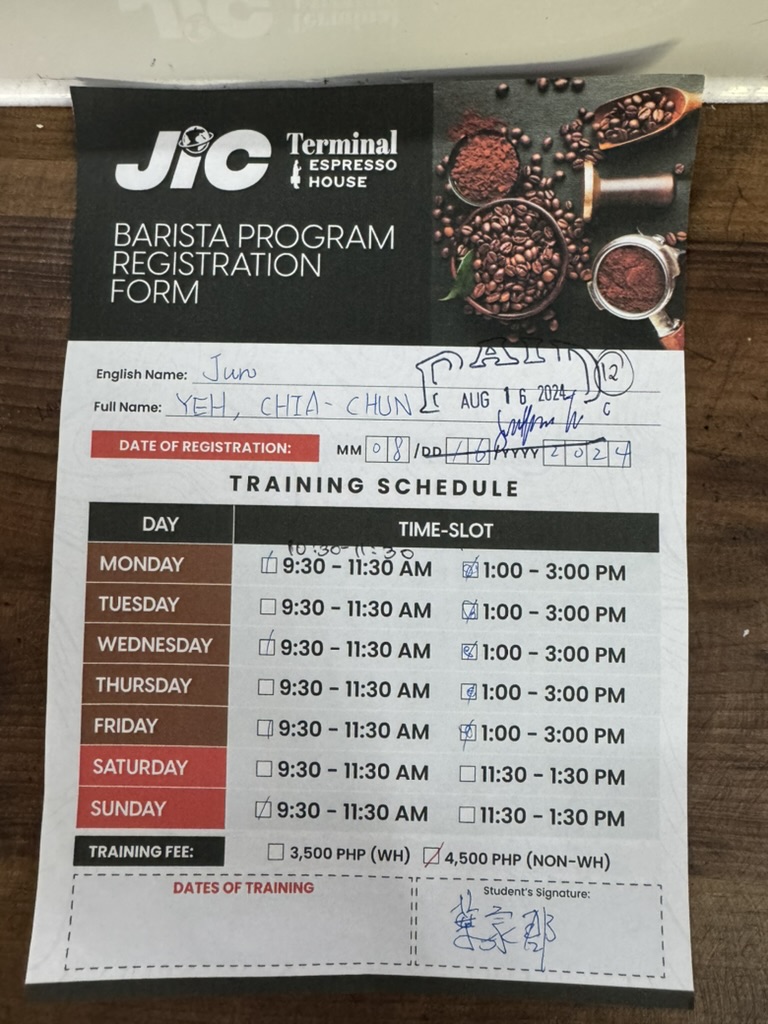 JiC Terminal
ESPRESSO
HOUSE
BARISTA PROGRAM
REGISTRATION
FORM
English Name: Jun
PAID
12
Full Name: YEH, CHIA-CHUN
AUG 16 2024
DATE OF REGISTRATION: MM 08 / DD 16 YYYY 2024
TRAINING SCHEDULE
DAY TIME-SLOT
10:30-11:30
MONDAY 9:30 - 11:30 AM 1:00 - 3:00 PM
TUESDAY 9:30 - 11:30 AM 1:00 - 3:00 PM
WEDNESDAY 9:30 - 11:30 AM 1:00 - 3:00 PM
THURSDAY 9:30 - 11:30 AM 1:00 - 3:00 PM
FRIDAY 9:30 - 11:30 AM 1:00 - 3:00 PM
SATURDAY 9:30 - 11:30 AM 11:30 - 1:30 PM
SUNDAY 9:30 - 11:30 AM 11:30 - 1:30 PM
TRAINING FEE: 3,500 PHP (WH) 4,500 PHP (NON-WH)
DATES OF TRAINING
Student's Signature:
葉家郡